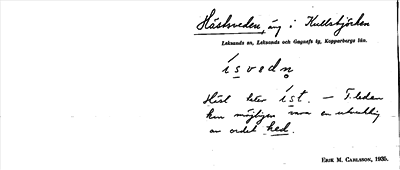 Hästveden, äng i Kullsbjörken
Leksands sn, Leksands och Gagnefs tg, Kopparbergs län.
ísvedn̥
Häst heter íst. – T. leden
kan möjligen vara en utveckling
av ordet hed.
ERIK M. CARLSSON, 1935.